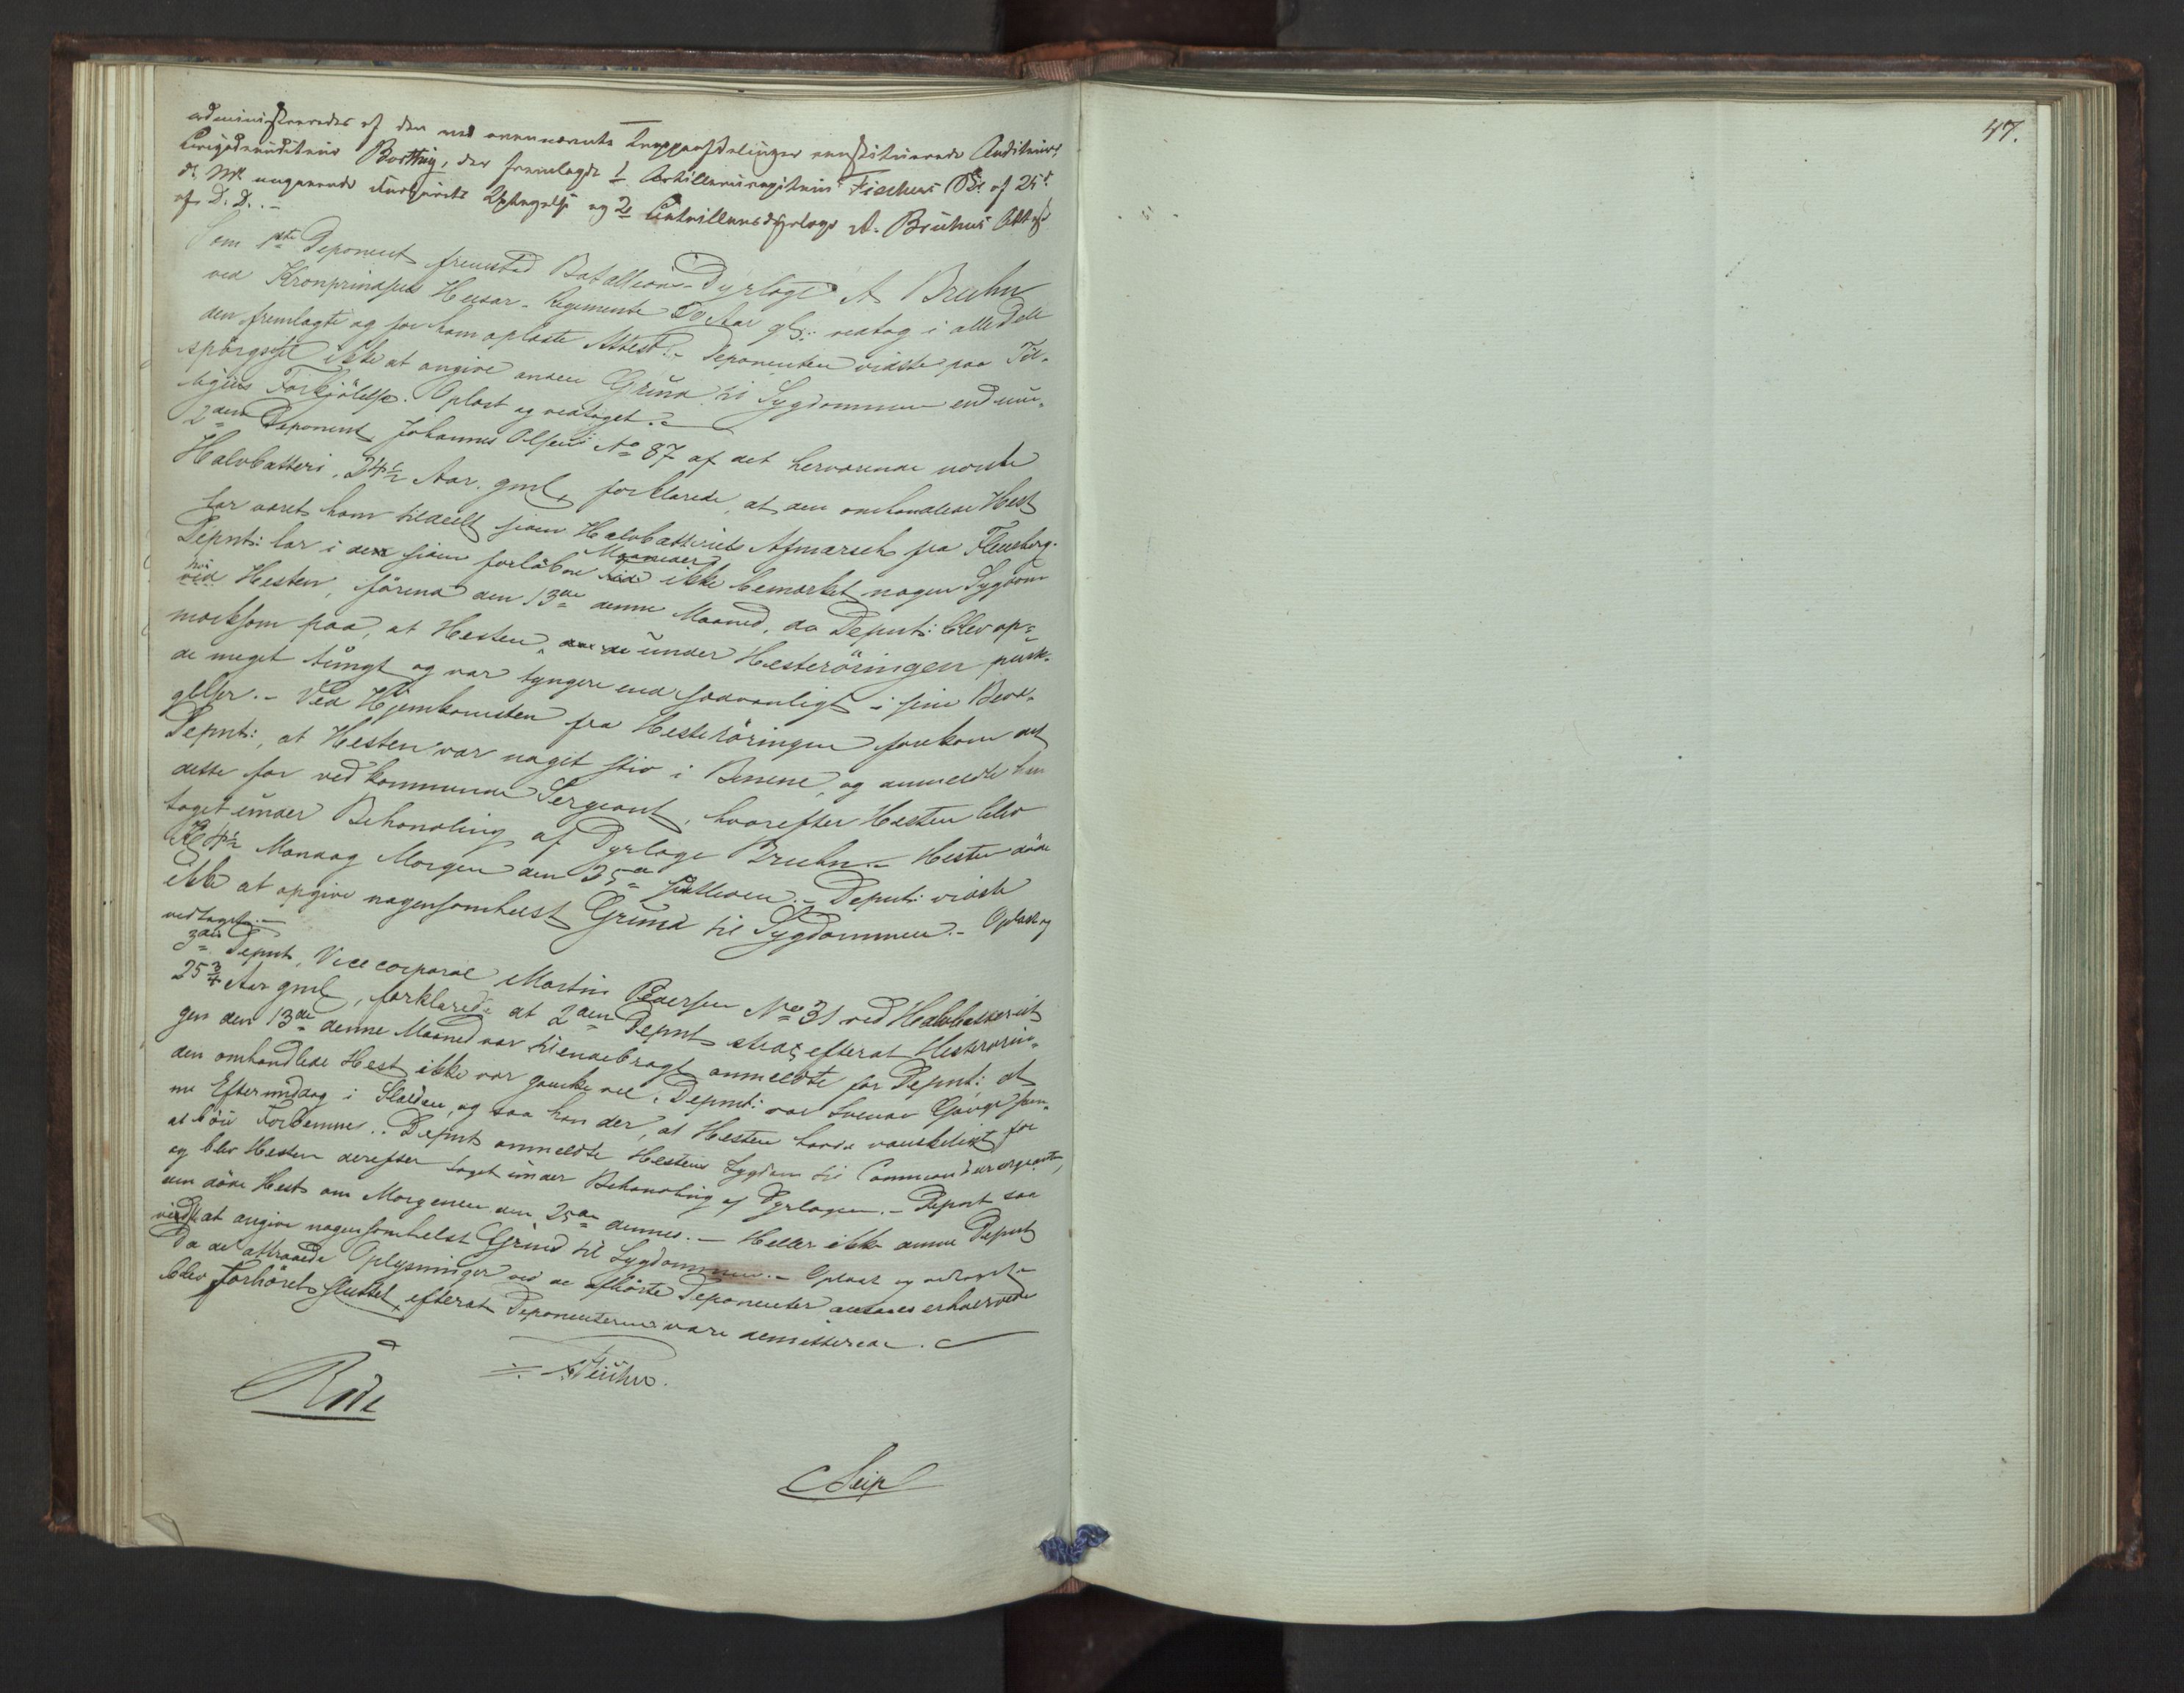 administreredes af den ved ovennævnte Troppeafdelinger constituerede Auditeur,
Brigadeauditeur Borthig, der fremlagde 1 Artillericapitein Fischers Ord. af 25d.
d. M. angaaende Forhørets Optagelse og 2 Batteillonsdyrlæge A. Bruhns Attest
af D. D. -
Som 1ste Deponent fremstod Batallions-Dyrlæge A Bruhn
ved Kronprindsens Husar-Regimente 50 Aar gl: vedtog i alle Dele
den fremlagte og for ham oplæste Attest. - Deponenten vidste paa Til-
spörgsel ikke at angive anden Grund til Sygdommen end mu-
ligens Forkjölelse. Oplæst og vedtaget. -
2den Deponent Johannes Olsen No 87 af det herværende norske
Halvbatteri, 24½ Aar gml, forklarede, at den omhandlede Hest
har været ham tildeelt siden Halvbatteriets Afmarsch fra Flensborg.
Depnt: har i den siden forløbne Maaneder ikke bemærket nogen Sygdom
hos Hesten, förend den 13de denne Maaned, da Depnt: blev op-
mærksom paa, at Hesten, under Hesteröringen pust-
de meget tungt og var tyngere end sædvanligt i sine Bevæ-
gelser. - Ved Hjemkomsten fra Hesteröringen forekom det
Depnt:, at Hesten var noget stiv i Benene, og anmeldte han
dette for vedkommende Sergeant, hvorefter Hesten blev
taget under Behandling af Dyrlæge Bruhn. - Hesten döde
Kl 4½ Mandag Morgen den 25de . - Depnt: vidste
ikke at opgive nogensomhelst Grund til Sygdommen. - Oplæst og
vedtaget. -
3die Depnt, Vicecorporal Martin Pedersen No 31 ved Halvbatteriet
25¾ Aar gml, forklarede at 2den Depnt strax efterat Hesterörin-
gen den 13de denne Maaned var tilendebragt anmeldte for Depnt: at
den omhandlede Hest ikke var ganske vel. Depnt: var Gange sam-
me Eftermiddag i Stalden, og saa han der, at Hesten havde vanskeligt for
at böie Forbenene. Depnt anmeldte Hestens Sygdom til Commandeersergeanten,
og blev Hesten derefter taget under Behandling af Dyrlægen. - Depnt saa
den döde Hest om Morgenen den 25de dennes. - Heller ikke denne Depnt
vidste at angive nogensomhelst Grund til Sygdommen. - Oplæst og vedtaget -
Da de attraaede Oplysninger ved de afhörte Deponenter ansaaes erhvervede
blev Forhöret sluttet, efterat Deponenterne vare demitterede.
Rode
Seip
47.